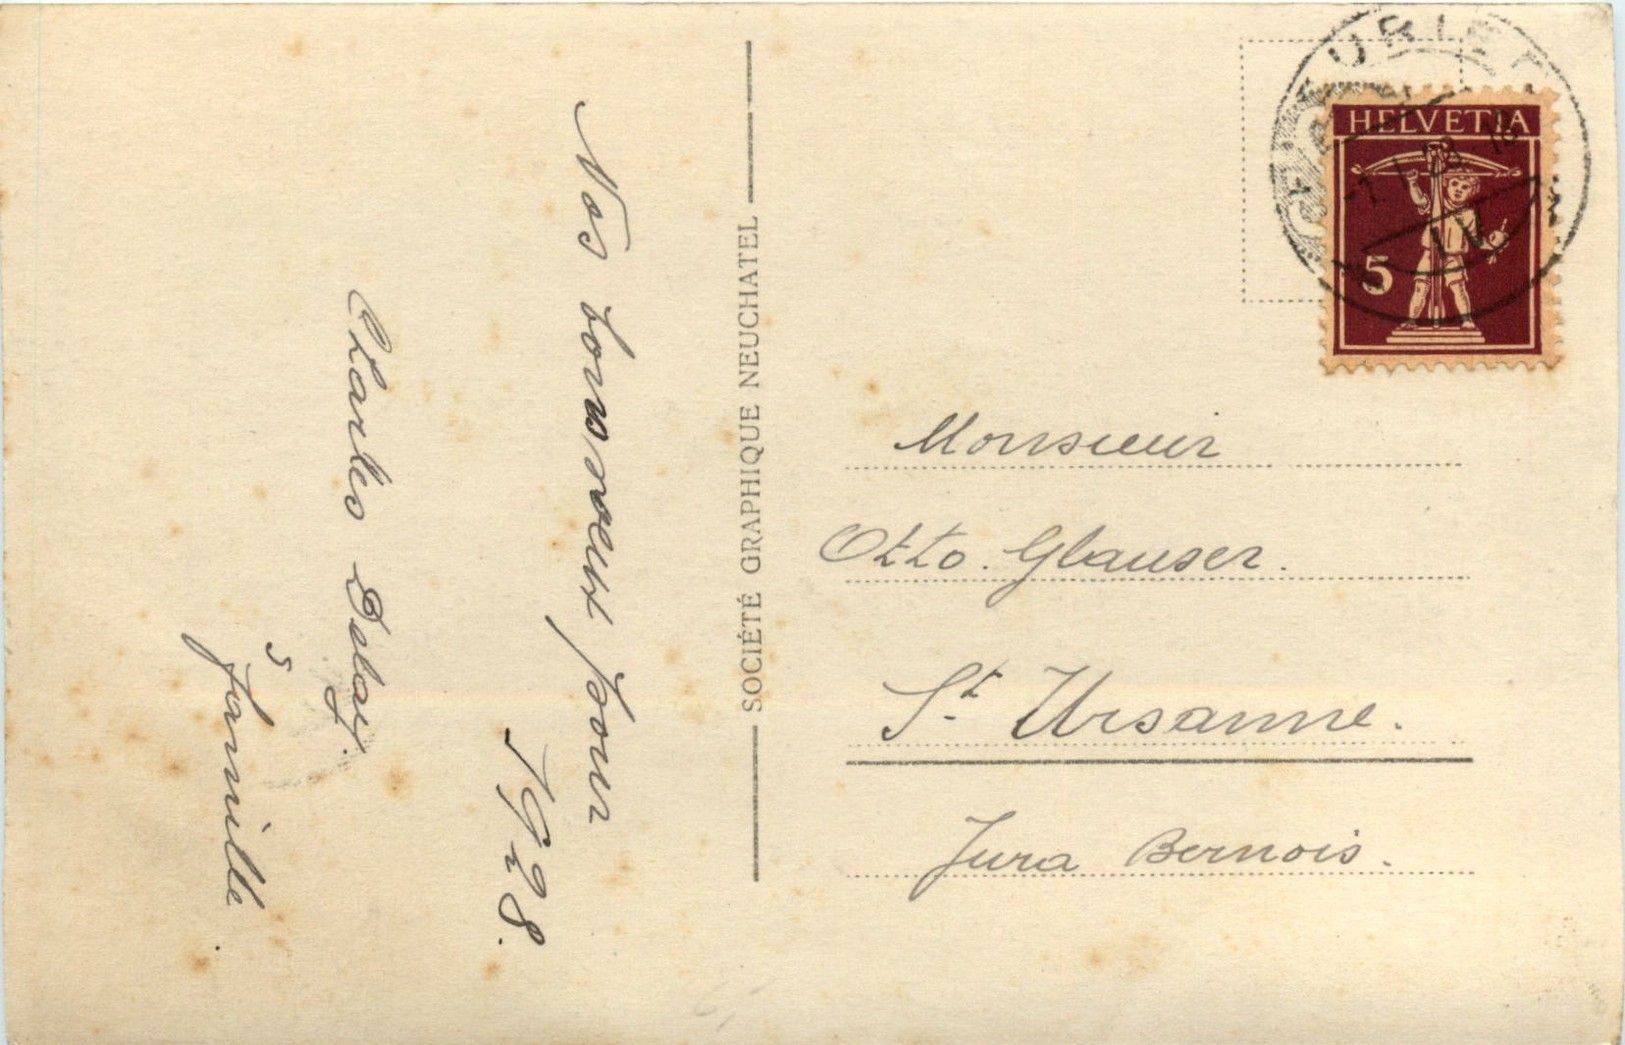 Nos bons voeux pour
1928.
Charles Delay.
famille
SOCIÉTÉ GRAPHIQUE NEUCHATEL
FLEURIER
HELVETIA
5
Monsieur
Otto. Glauser.
St Ursanne.
Jura Bernois.